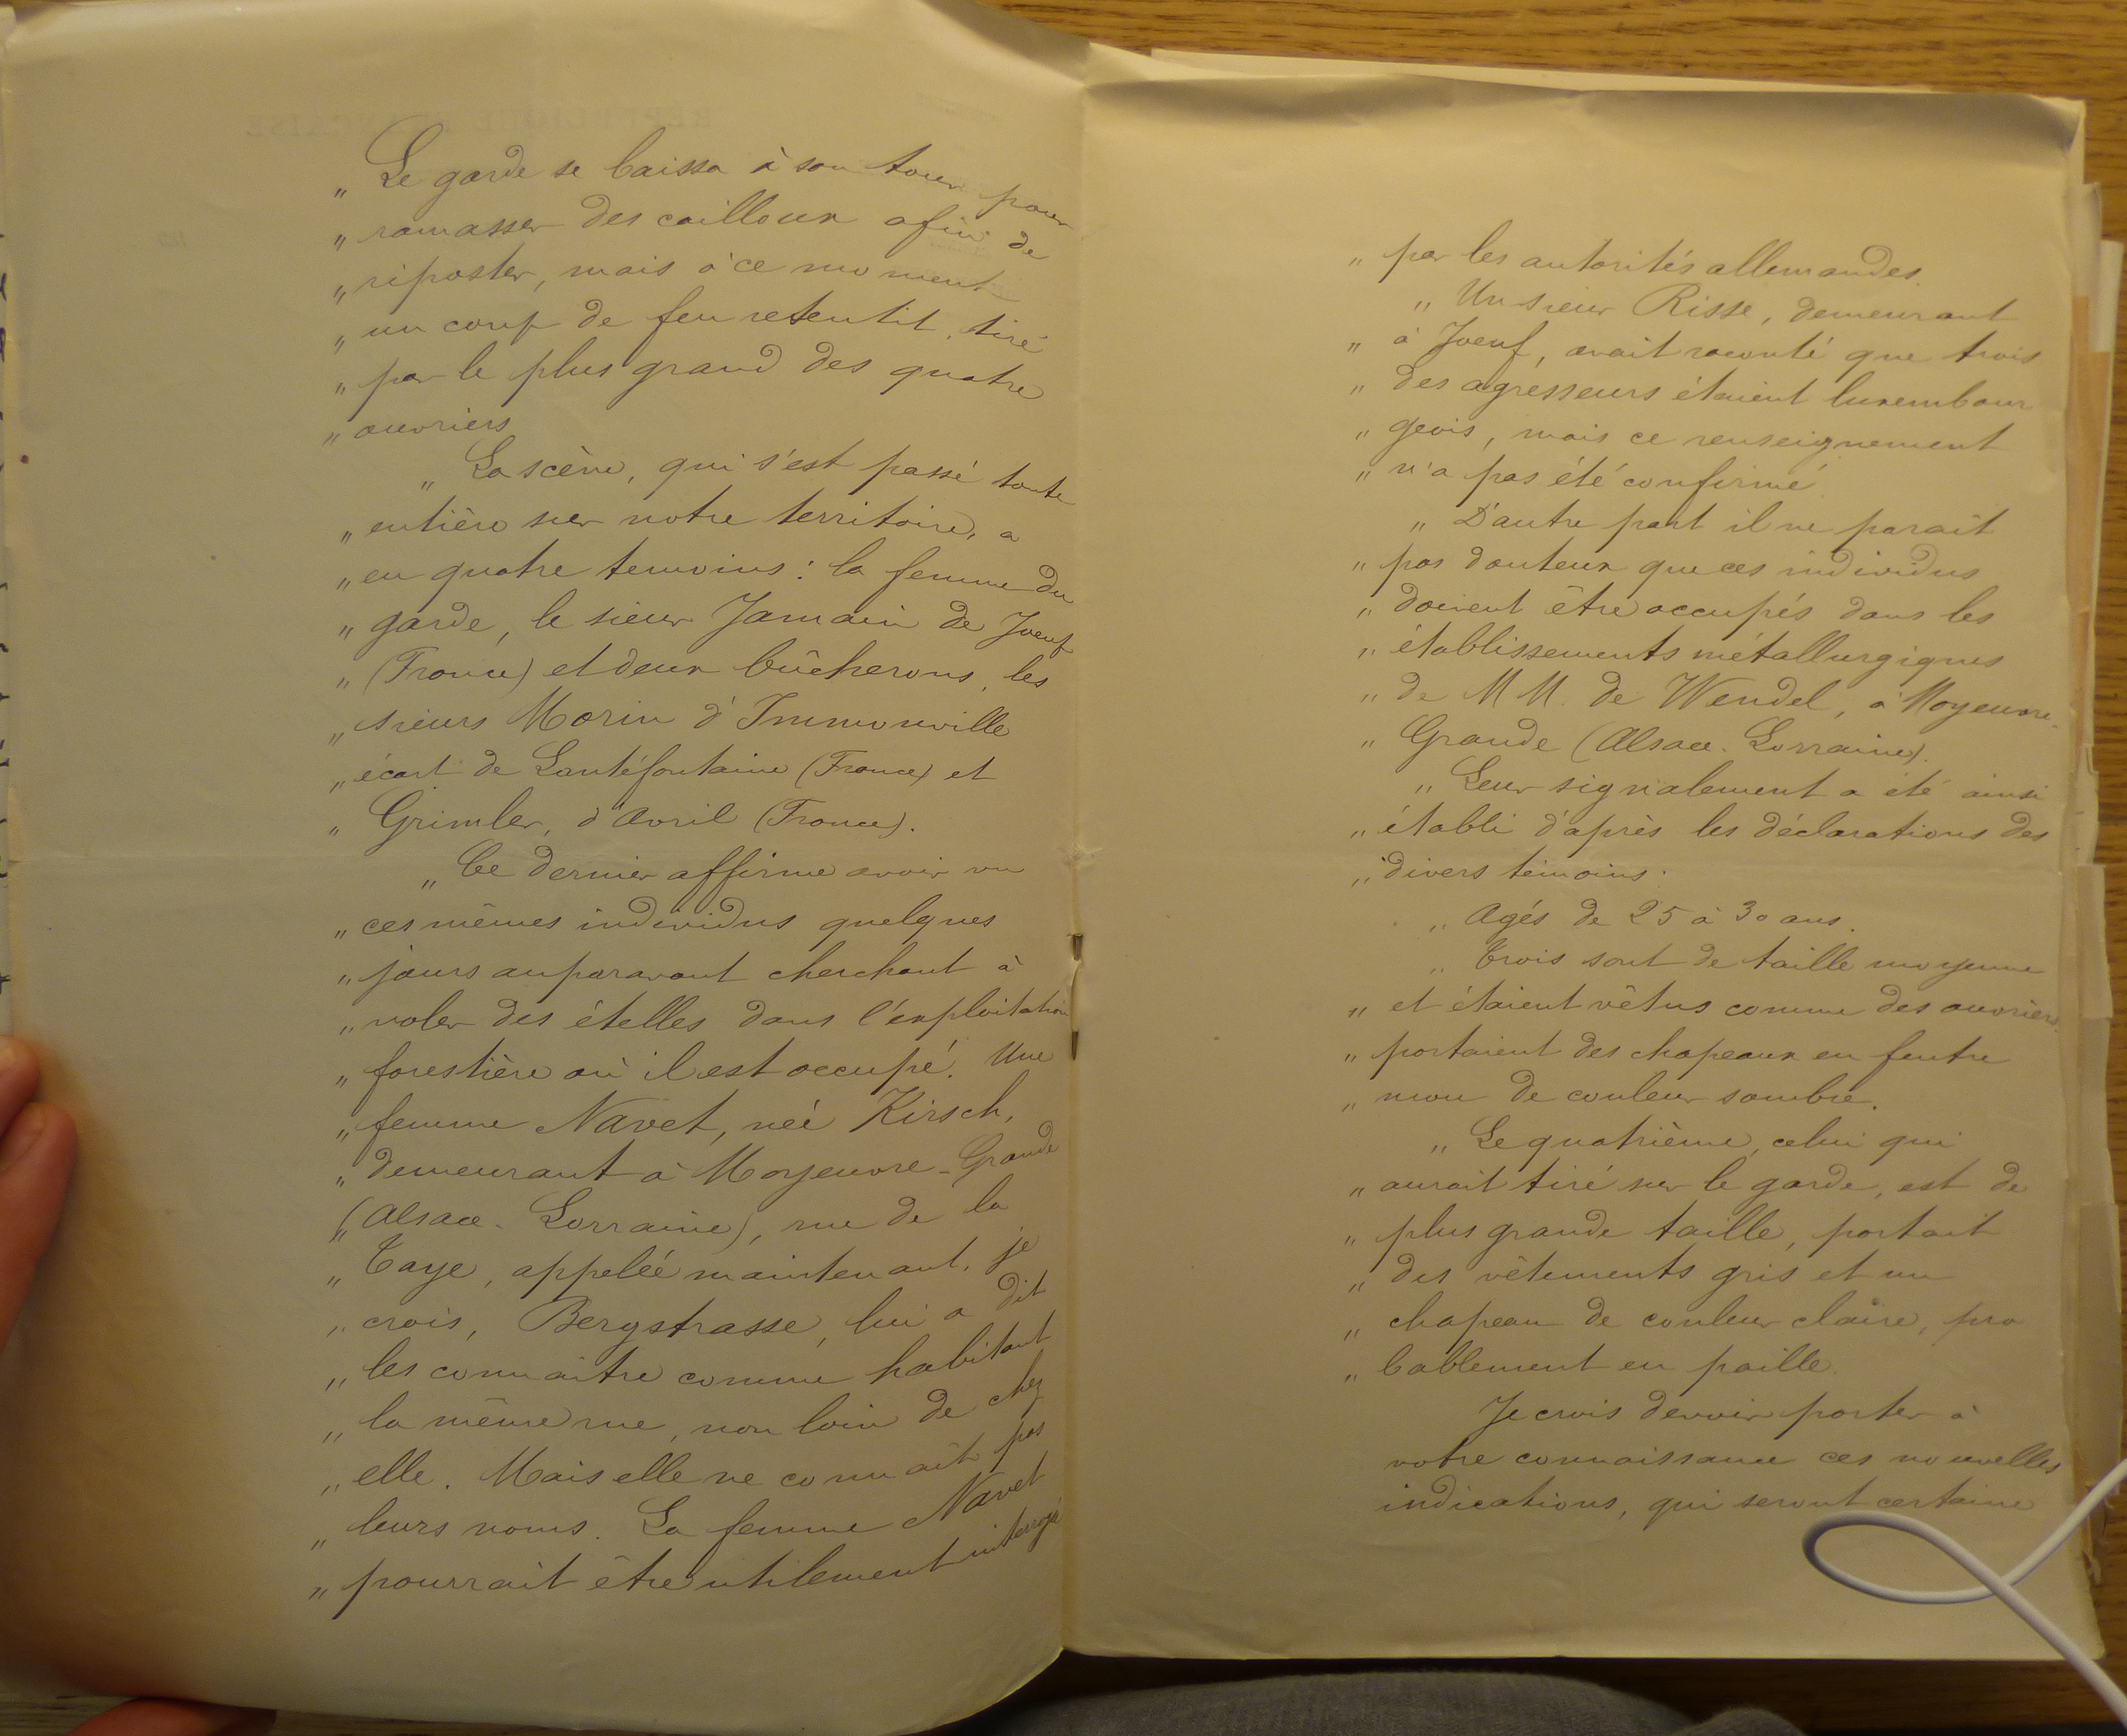 „ Le garde se baissa à son tour pour
„ ramasser des cailloux afin de
„ riposter, mais à ce moment
„ un coup de feu retentit, tiré
„ par le plus grand des quatre
„ ouvriers
„ La scène, qui s'est passé toute
„ entière sur notre territoire, a
„ eu quatre temoins : la femme du
„ garde, le sieur Jamain de Joeuf
„ (France) et deux bûcherons, les
„ sieurs Morin d'Immonville
„ écart de Lantéfontaine (France) et
„ Grimler, d'Avril (France).
„ Ce dernier affirme avoir vu
„ ces mêmes individus quelques
„ jours auparavant cherchant à
„ voler des ételles dans l'exploitation
„ forestière où il est occupé. Une
„ femme Navet, née Kirsch,
„ demeurant à Moyeuvre-Grande
„ (Alsace-Lorraine), rue de la
„ Taye, appelée maintenant, je
„ crois, Bergstrasse, lui a dit
„ les connaitre comme habitant
„ la même rue, non loin de chez
„ elle. Mais elle ne connaît pas
„ leurs noms. La femme Navet
„ pourrait être utilement interrogé
„ par les autorités allemandes.
„ Un sieur Risse, demeurant
„ à Joeuf, avait raconté que trois
„ des agresseurs étaient luxembour
„ geois, mais ce renseignement
„ n'a pas été confirmé
„ D'autre part il ne parait
„ pas douteux que ces individus
„ doivent être occupés dans les
„ établissements métallurgiques
„ de MM. de Wendel, à Moyeuvre-
„ Grande (Alsace-Lorraine).
„ Leur signalement a été ainsi
„ établi d'après les déclarations des
„ divers témoins :
„ Agés de 25 à 30 ans.
„ Trois sont de taille moyenne
„ et étaient vêtus comme des ouvriers,
„ portaient des chapeaux en feutre
„ mou de couleur sombre.
„ Le quatrième, celui qui
„ aurait tiré sur le garde, est de
„ plus grande taille, portait
„ des vêtements gris et un
„ chapeau de couleur claire, pro
„ bablement en paille.
Je crois devoir porter à
votre connaissance ces nouvelles
indications, qui seront certaine